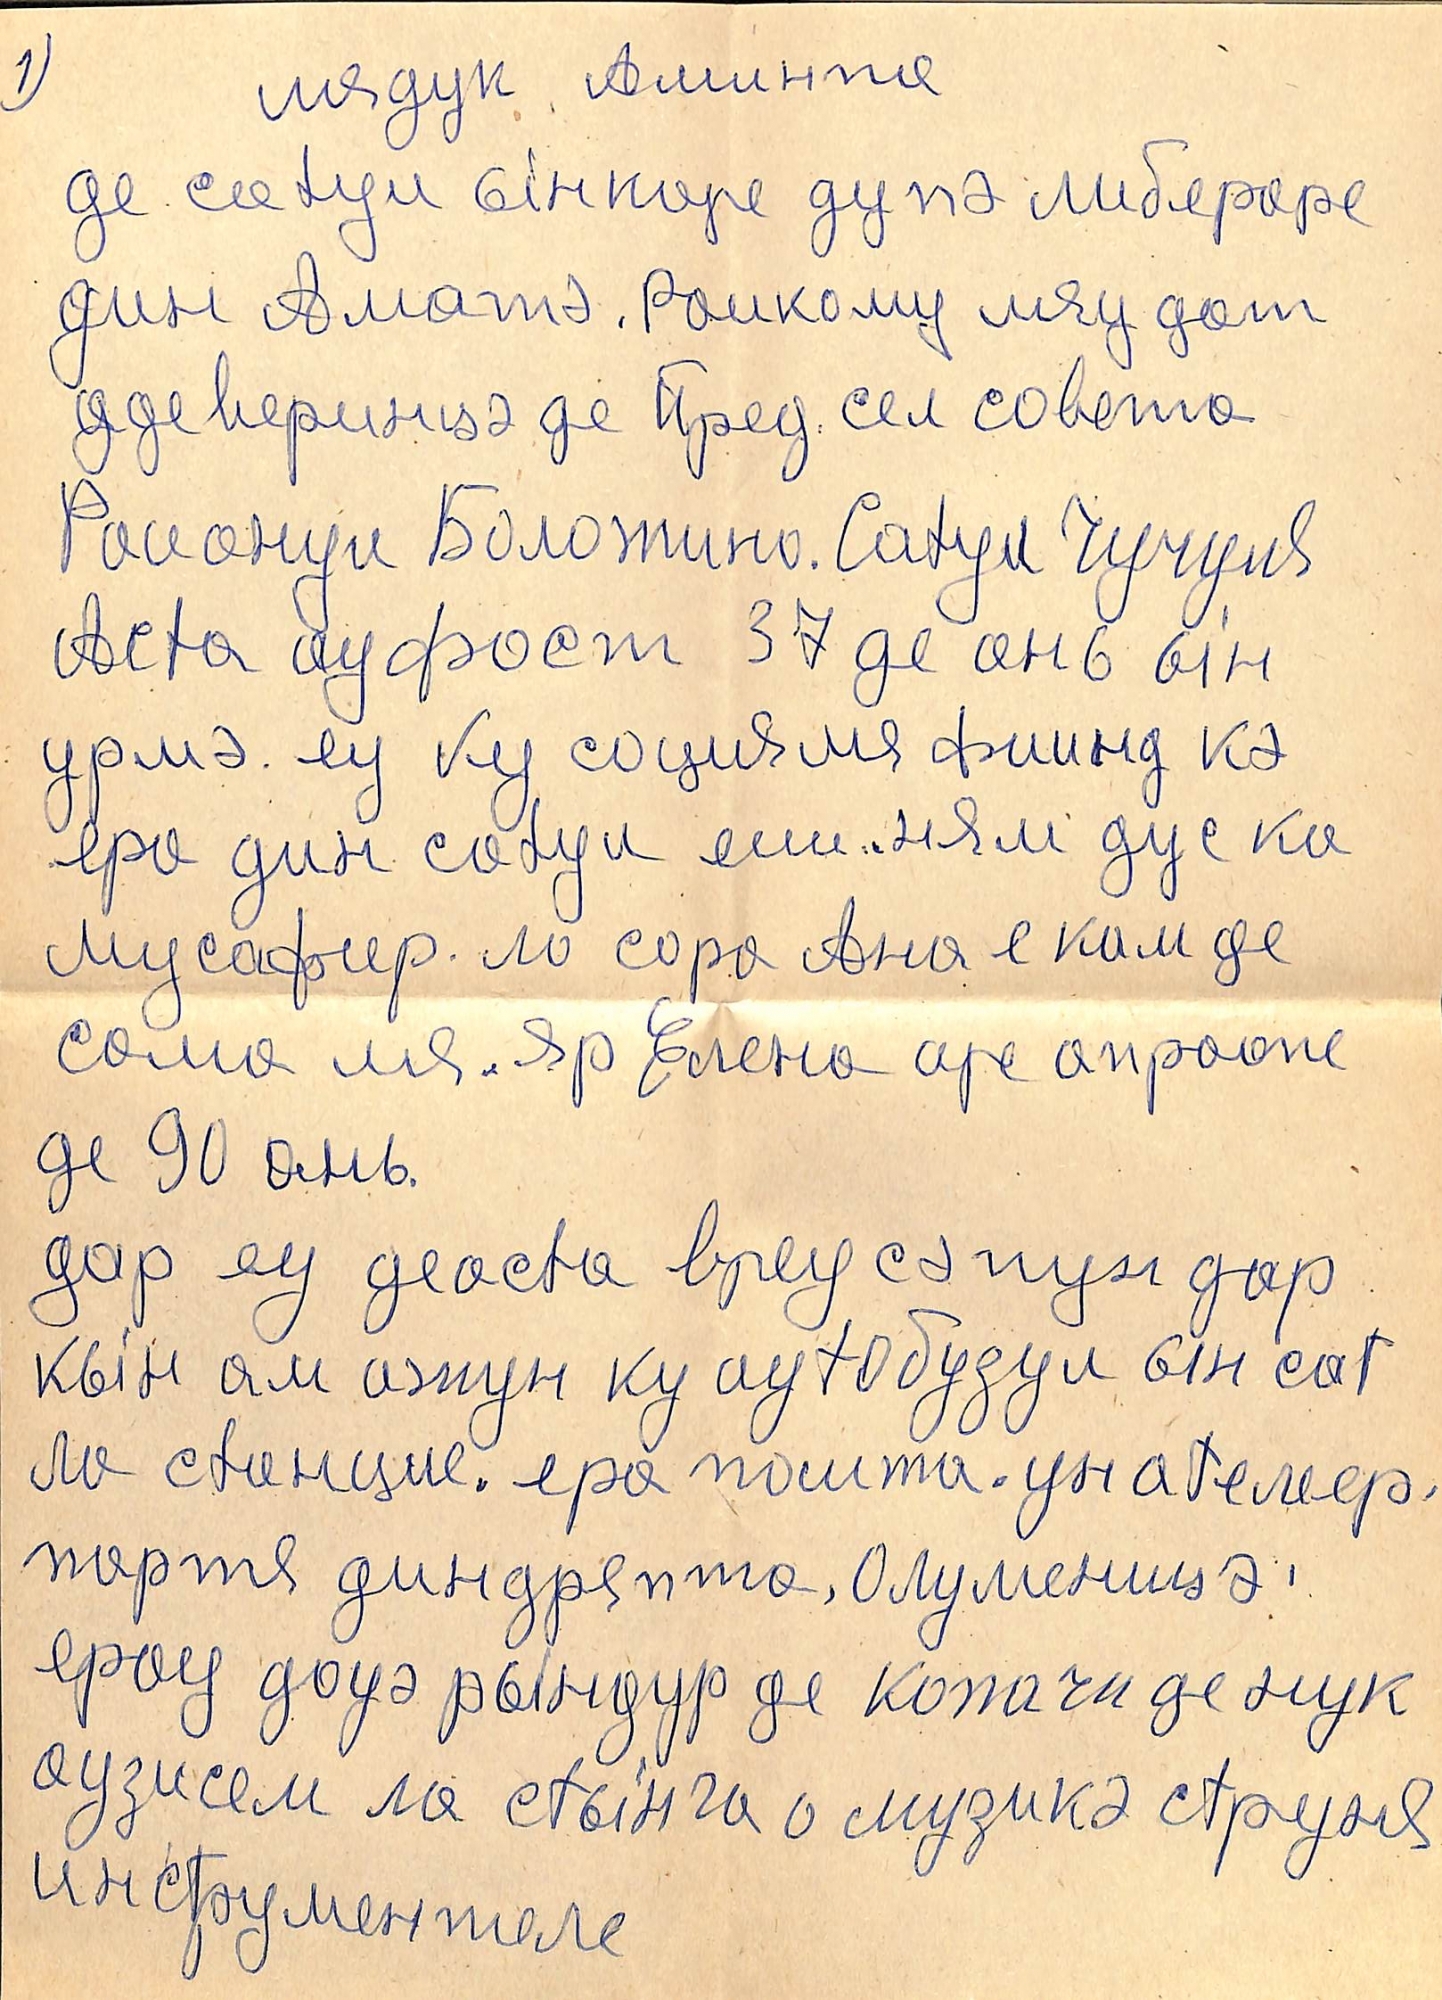 1)
мядук Аминте
де сатул ынкаре дупэ либераре
дин Аматэ. Раикому мяу дат
адеверинцэ де Пред. сел совета
Раионул Боложино. Сатул Чучуля
Аста ау фост 37 де ань ын
урмэ. еу ку соция мя фиинд кэ
ера дин сатул еш.. ням дус ка
мусафир. ла сора Ана е кам де
сама мя.. яр Елена аре апроапе
де 90 ань.
дар еу деаста вреу сэ пун дар
кын ам ажун ку аутобузул ын сат
ла станцие. ера пошта. ун ателиер.
партя диндряпта, Олуменицэ,
ерау доуэ рындур де копачи де нук
аузисем ла стынга о музикэ струня
инструментеле